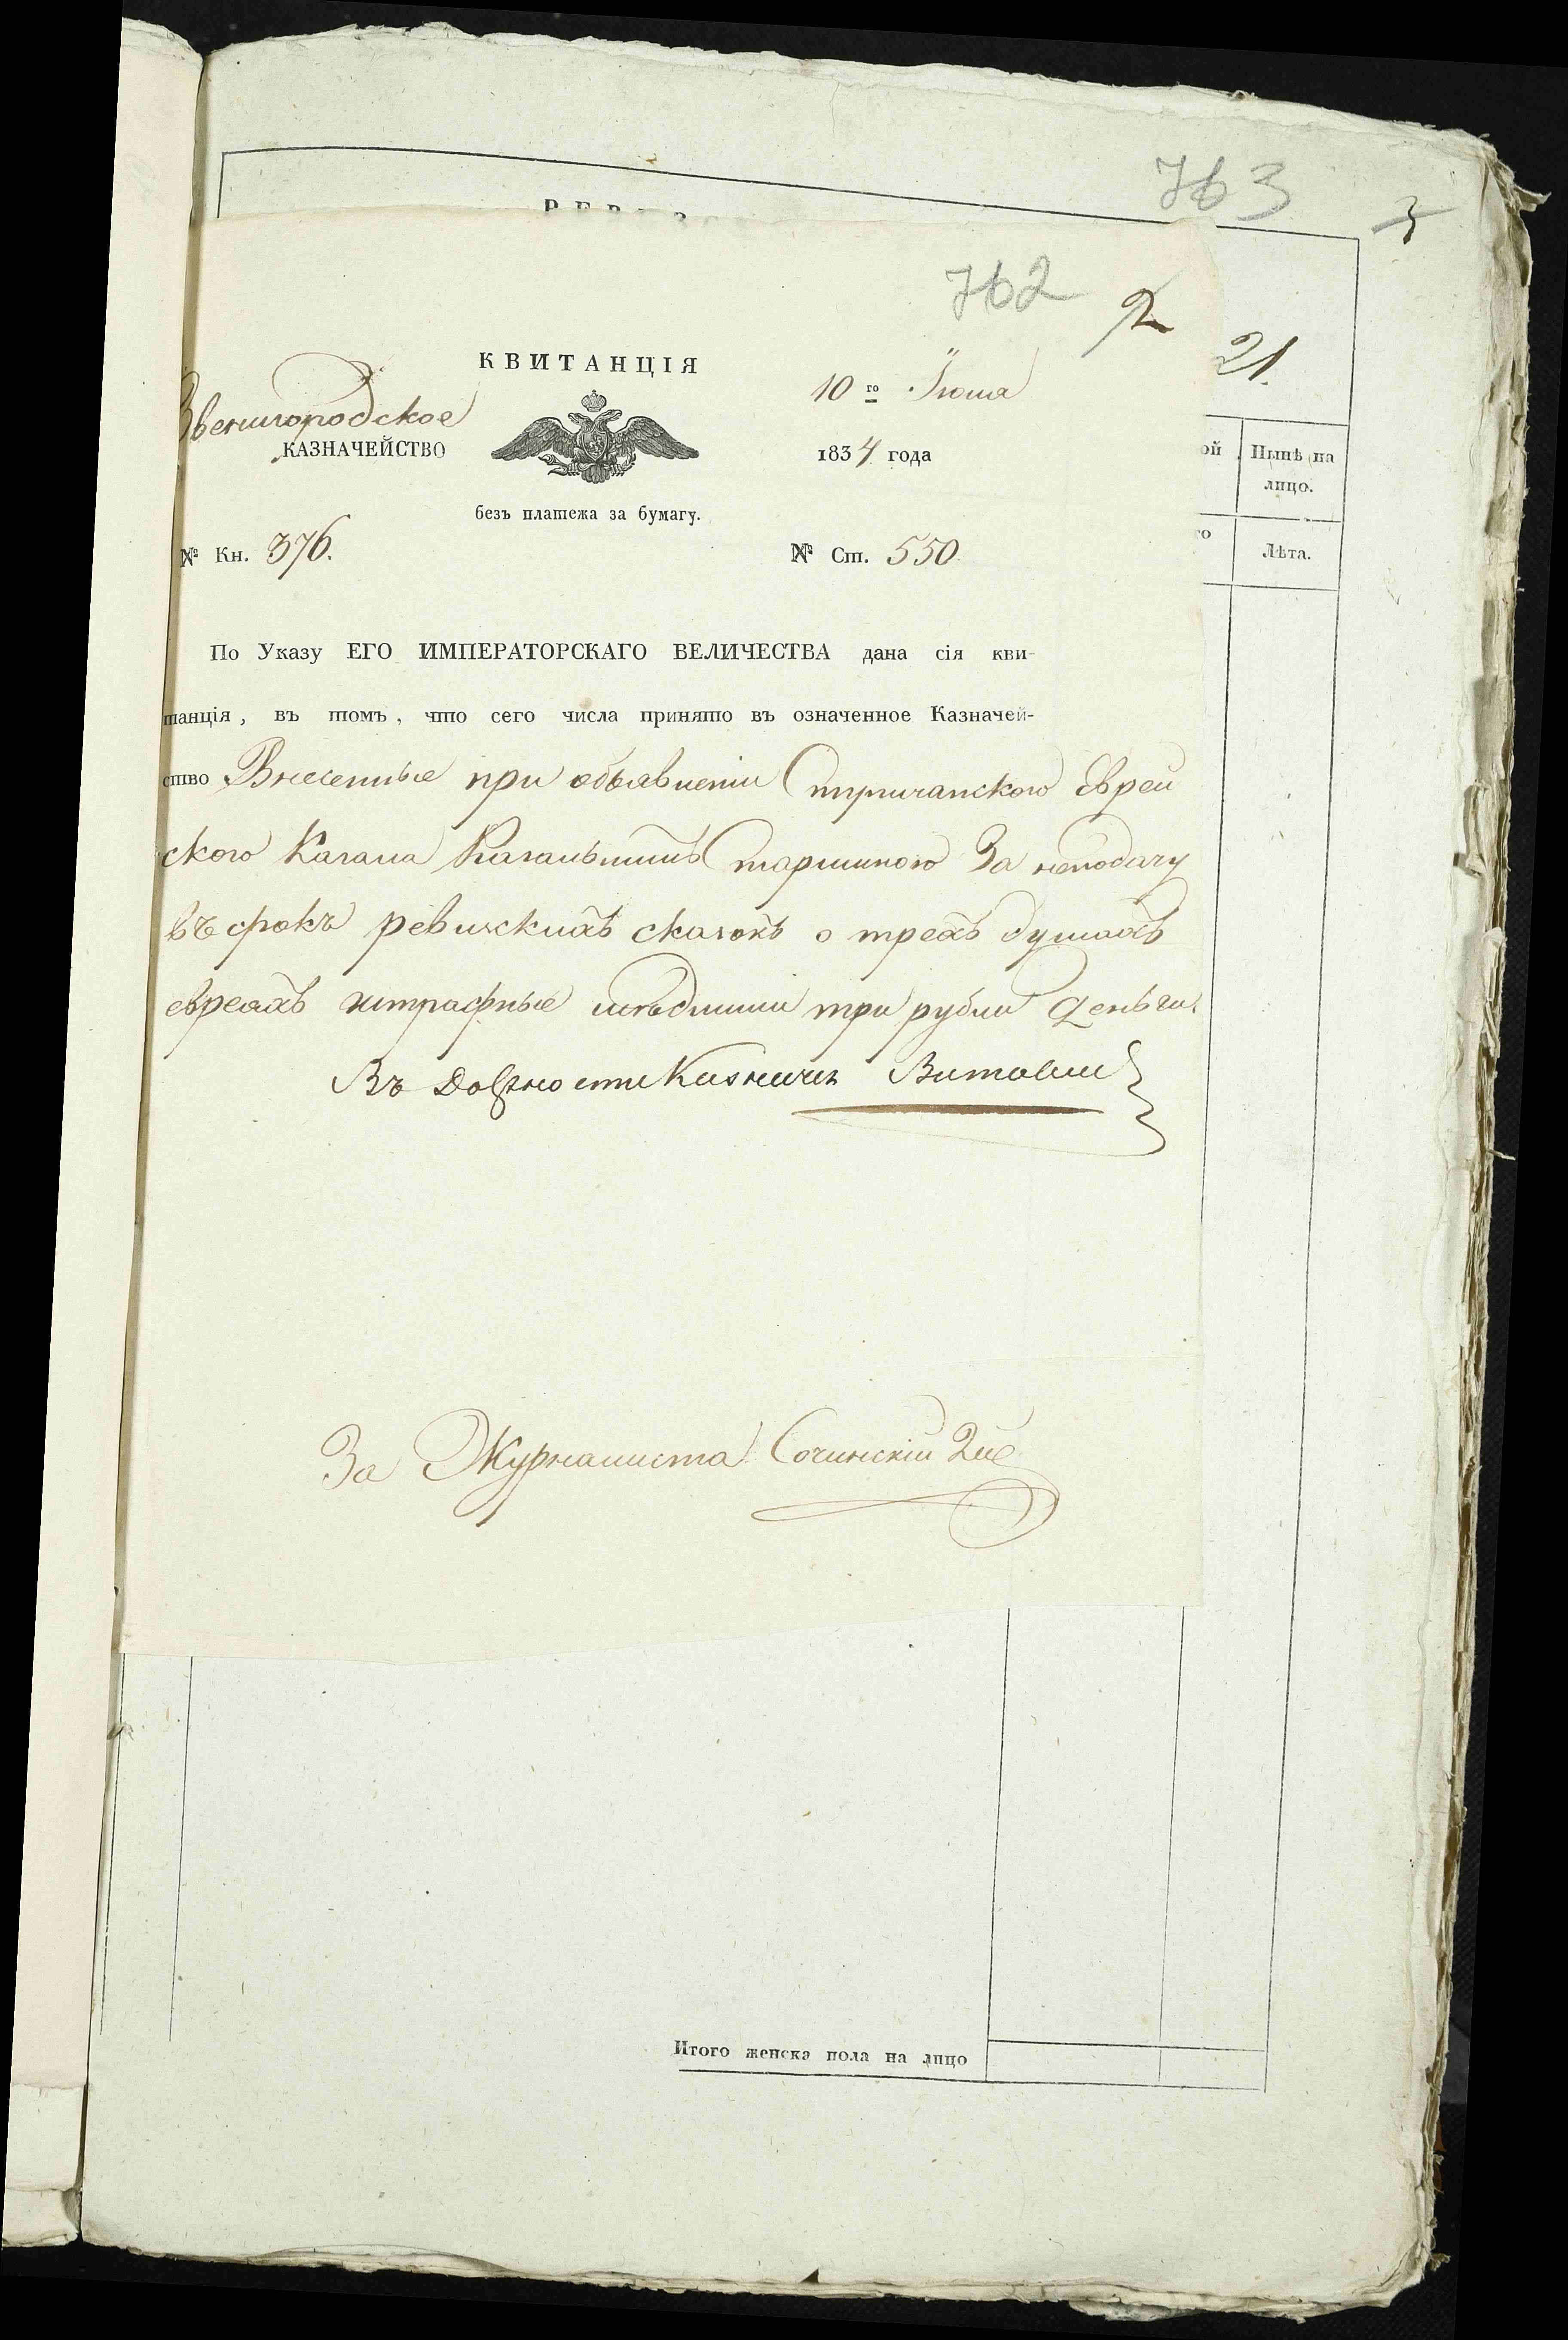 763
3
762
2
21.
КВИТАНЦІЯ
Звенигородское
КАЗНАЧЕЙСТВО
10 го Іюня
1834 года
безъ платежа за бумагу.
№ Кн. 376.
№ Ст. 550
ой
Нынѣ на
лицо.
го
Лѣта.
По Указу ЕГО ИМПЕРАТОРСКАГО ВЕЛИЧЕСТВА дана сія кви-
танція, въ томъ, что сего числа принято въ означенное Казначей-
ство Внесенные при объявленіи Еврей
ского Кагала Старшиною За неподачу
въ срокъ ревижскихъ сказокъ о трехъ душахъ
евреахъ штрафные мѣдными три рубли деньги.
Въ Должности Казначея
За Журналиста Сочинскій
Итого женска пола на лицо